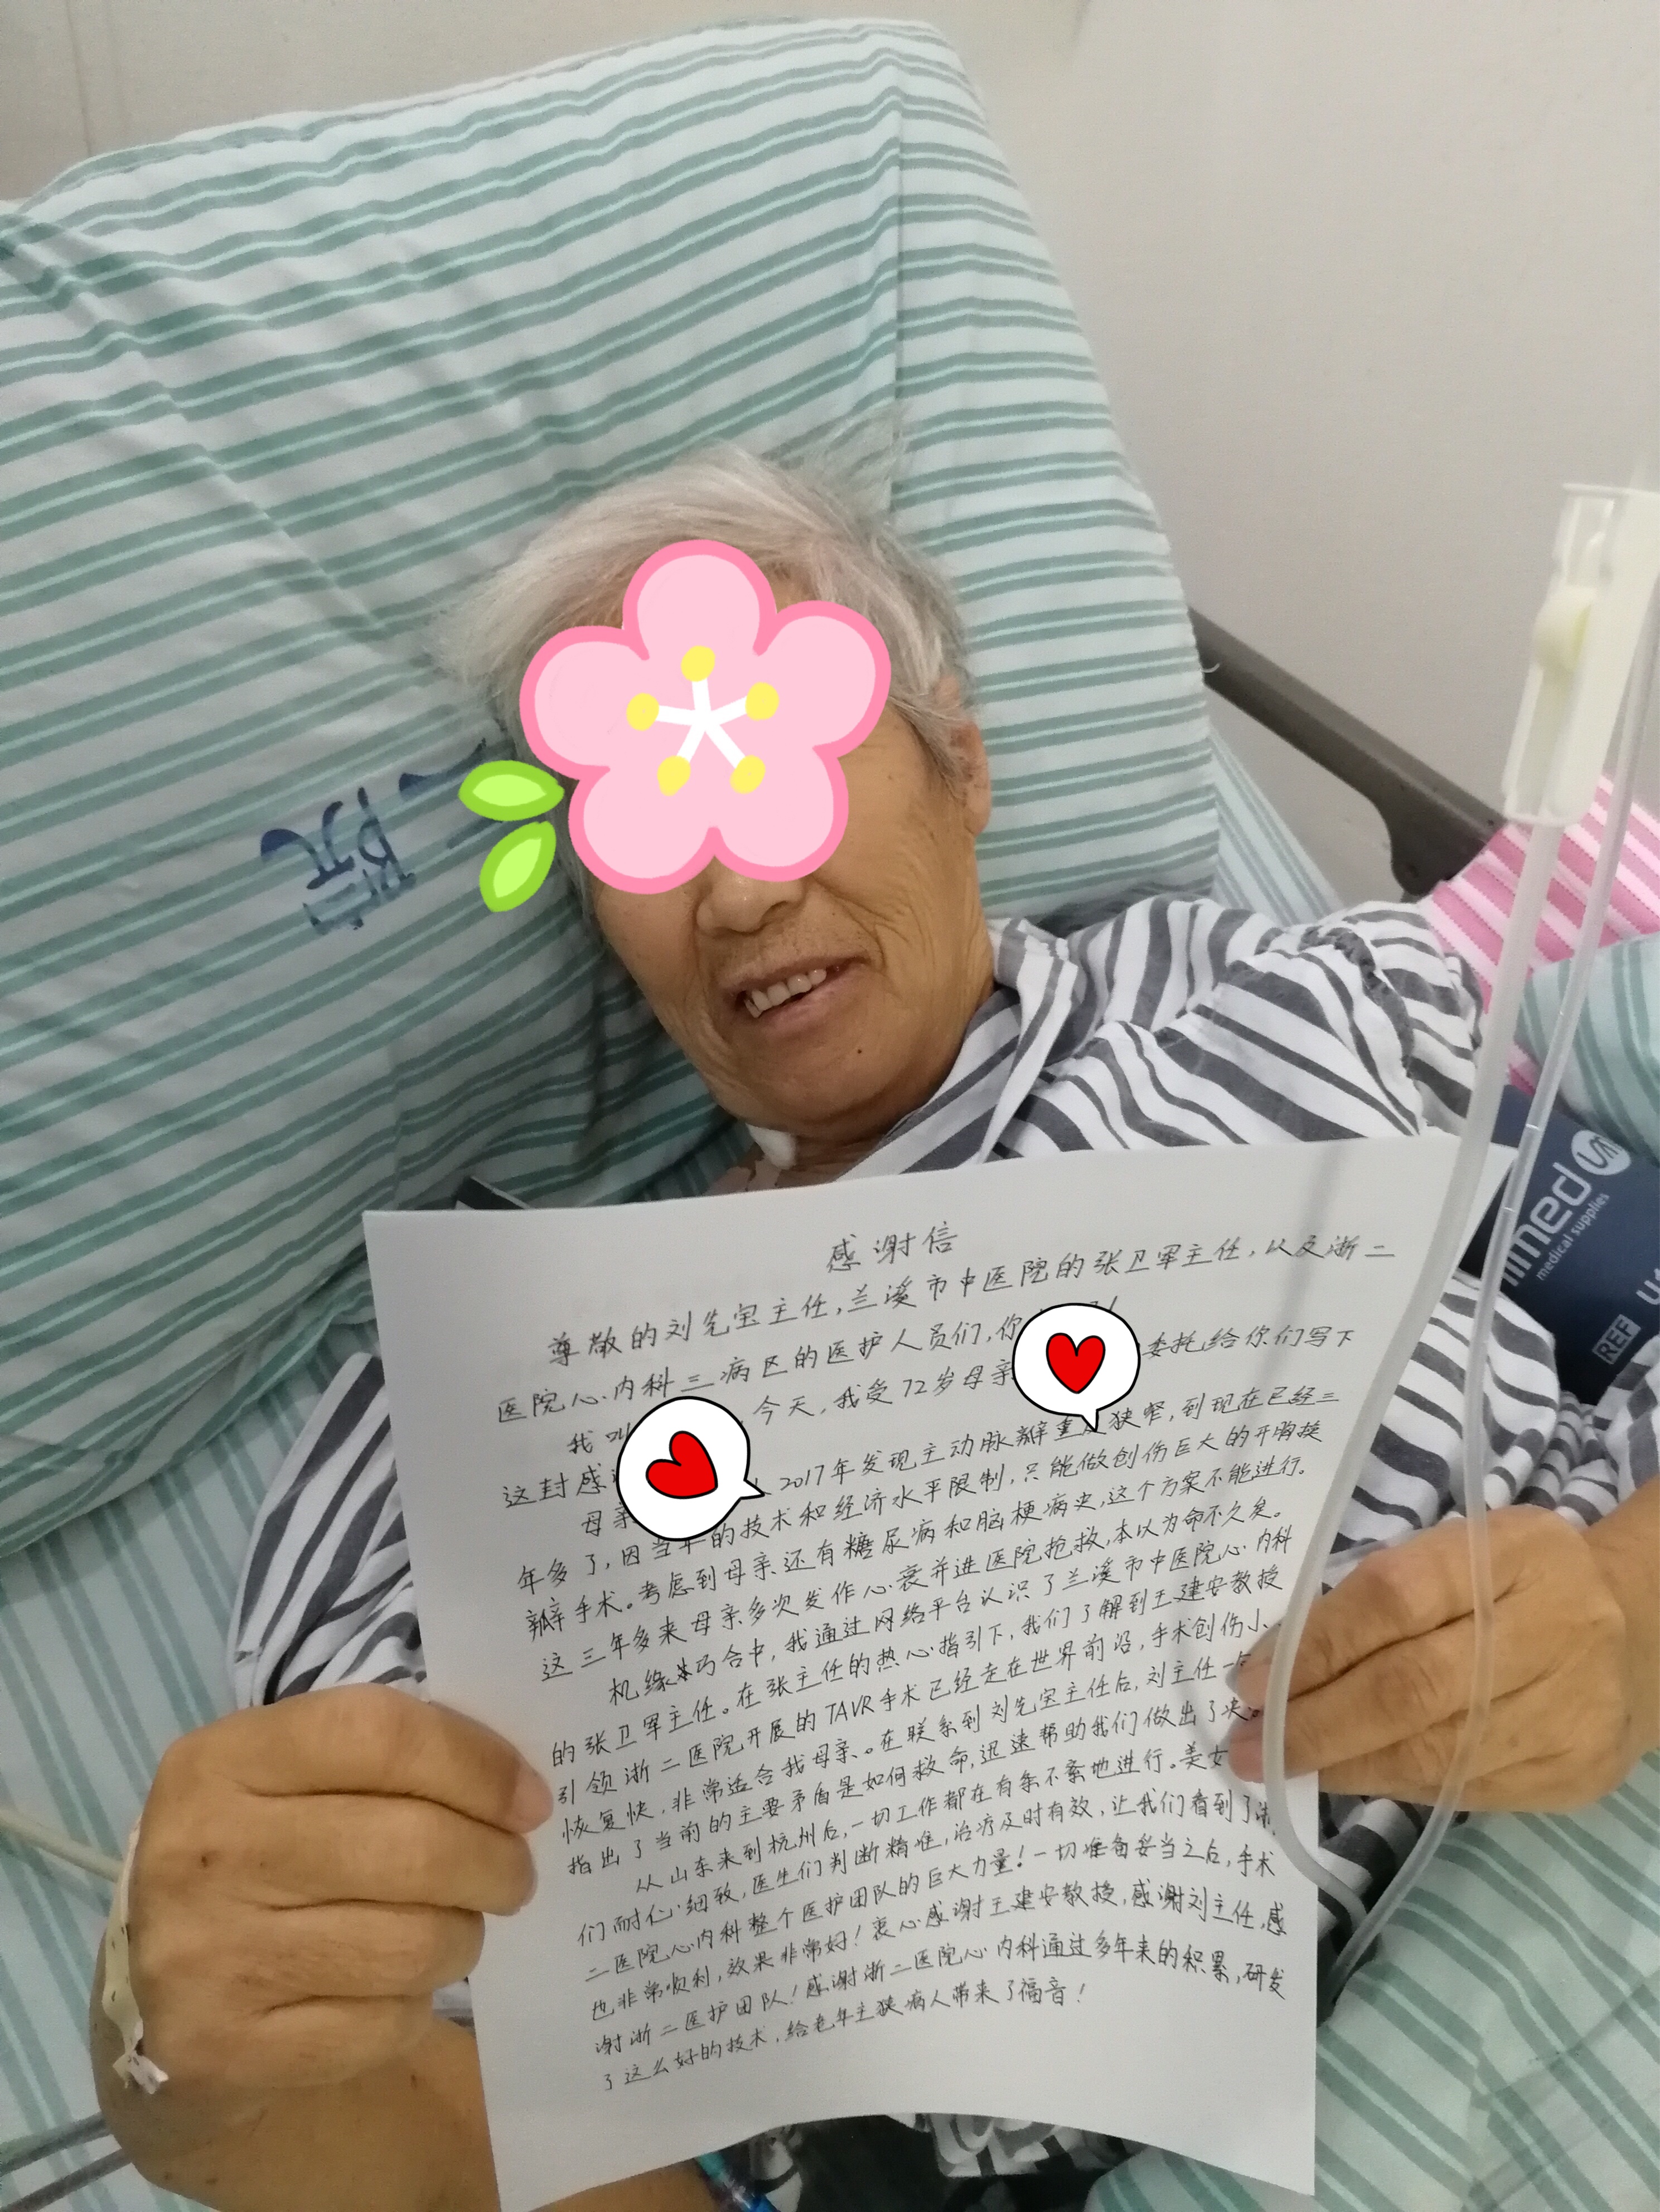 感谢信
尊敬的刘先宝主任,兰溪市中医院的张卫军主任,以及浙二
医院心内科三病区的医护人员们,你
我叫 今天,我受72岁母亲 委托,给你们写下
这封感
母亲 2017年发现主动脉瓣重度狭窄,到现在已经三
年多了,因当年的技术和经济水平限制,只能做创伤巨大的开胸换
瓣手术。考虑到母亲还有糖尿病和脑梗病史,这个方案不能进行。
这三年多来母亲多次发作心衰并进医院抢救,本以为命不久矣。
机缘巧合中,我通过网络平台认识了兰溪市中医院心内科
的张卫军主任。在张主任的热心指引下,我们了解到王建安教授
引领浙二医院开展的TAVR手术已经走在世界前沿,手术创伤小、
恢复快,非常适合我母亲。在联系到刘先宝主任后,刘主任一
指出了当前的主要矛盾是如何救命,迅速帮助我们做出了决
从山东来到杭州后,一切工作都在有条不紊地进行。美女
们耐心细致,医生们判断精准,治疗及时有效,让我们看到了浙
二医院心内科整个医护团队的巨大力量!一切准备妥当之后,手术
也非常顺利,效果非常好!衷心感谢王建安教授,感谢刘主任,感
谢浙二医护团队!感谢浙二医院心内科通过多年来的积累,研发
了这么好的技术,给老年主狭病人带来了福音!
院
med
medical supplies
REF